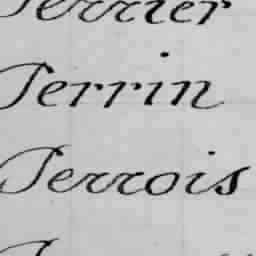 Perrier
Perrin
Perrois